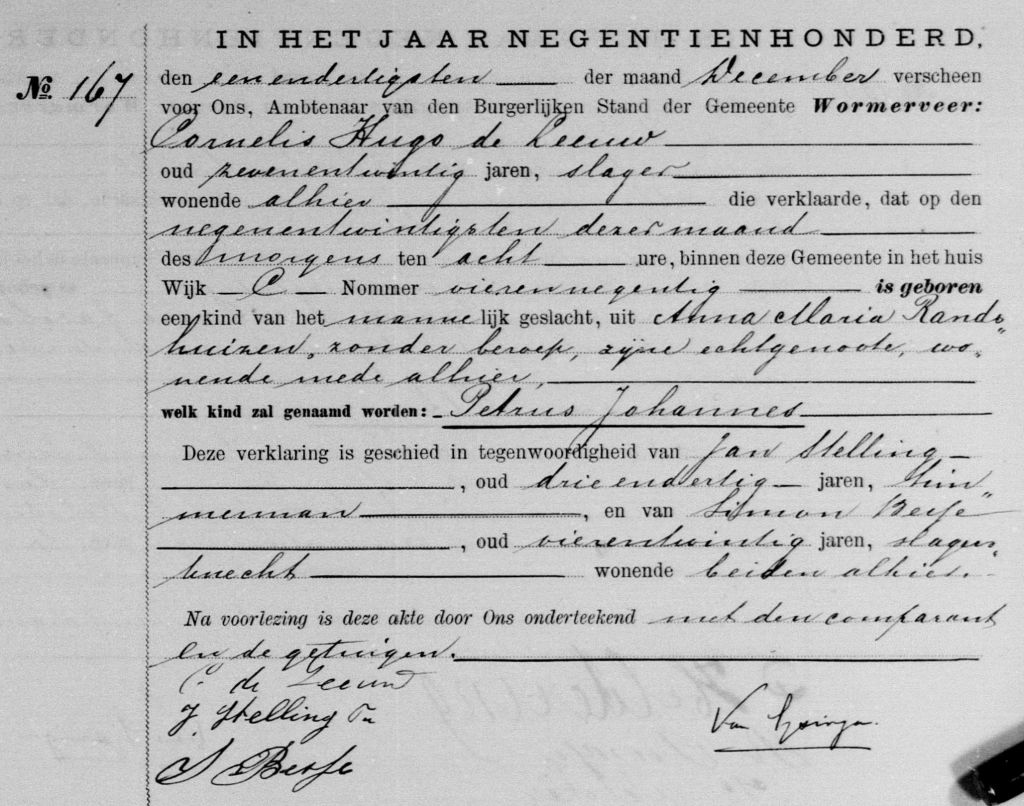 IN HET JAAR NEGENTIENHONDERD,
No. 167
den eenendertigsten der maand December verscheen
voor Ons, Ambtenaar van den Burgerlijken Stand der Gemeente Wormerveer:
Cornelis Hugo de Leeuw
oud zevenentwintig jaren, slager
wonende alhier die verklaarde, dat op den
negenentwintigsten dezer maand
des morgens ten acht ure, binnen deze Gemeente in het huis
Wijk C Nommer vierennegentig is geboren
een kind van het mannelijk geslacht, uit Anna Maria Rands
huizen, zonder beroep, zijne echtgenoote, wo„
nende mede alhier,
welk kind zal genaamd worden: Petrus Johannes
Deze verklaring is geschied in tegenwoordigheid van Jan Stelling
, oud drieendertig jaren, tim
merman, en van Simon Besse
, oud vierentwintig jaren, slagers„
knecht wonende beiden alhier.
Na voorlezing is deze akte door Ons onderteekend met den comparant
en de getuigen.
C. de Leeuw
J. Stelling
S Besse
Van